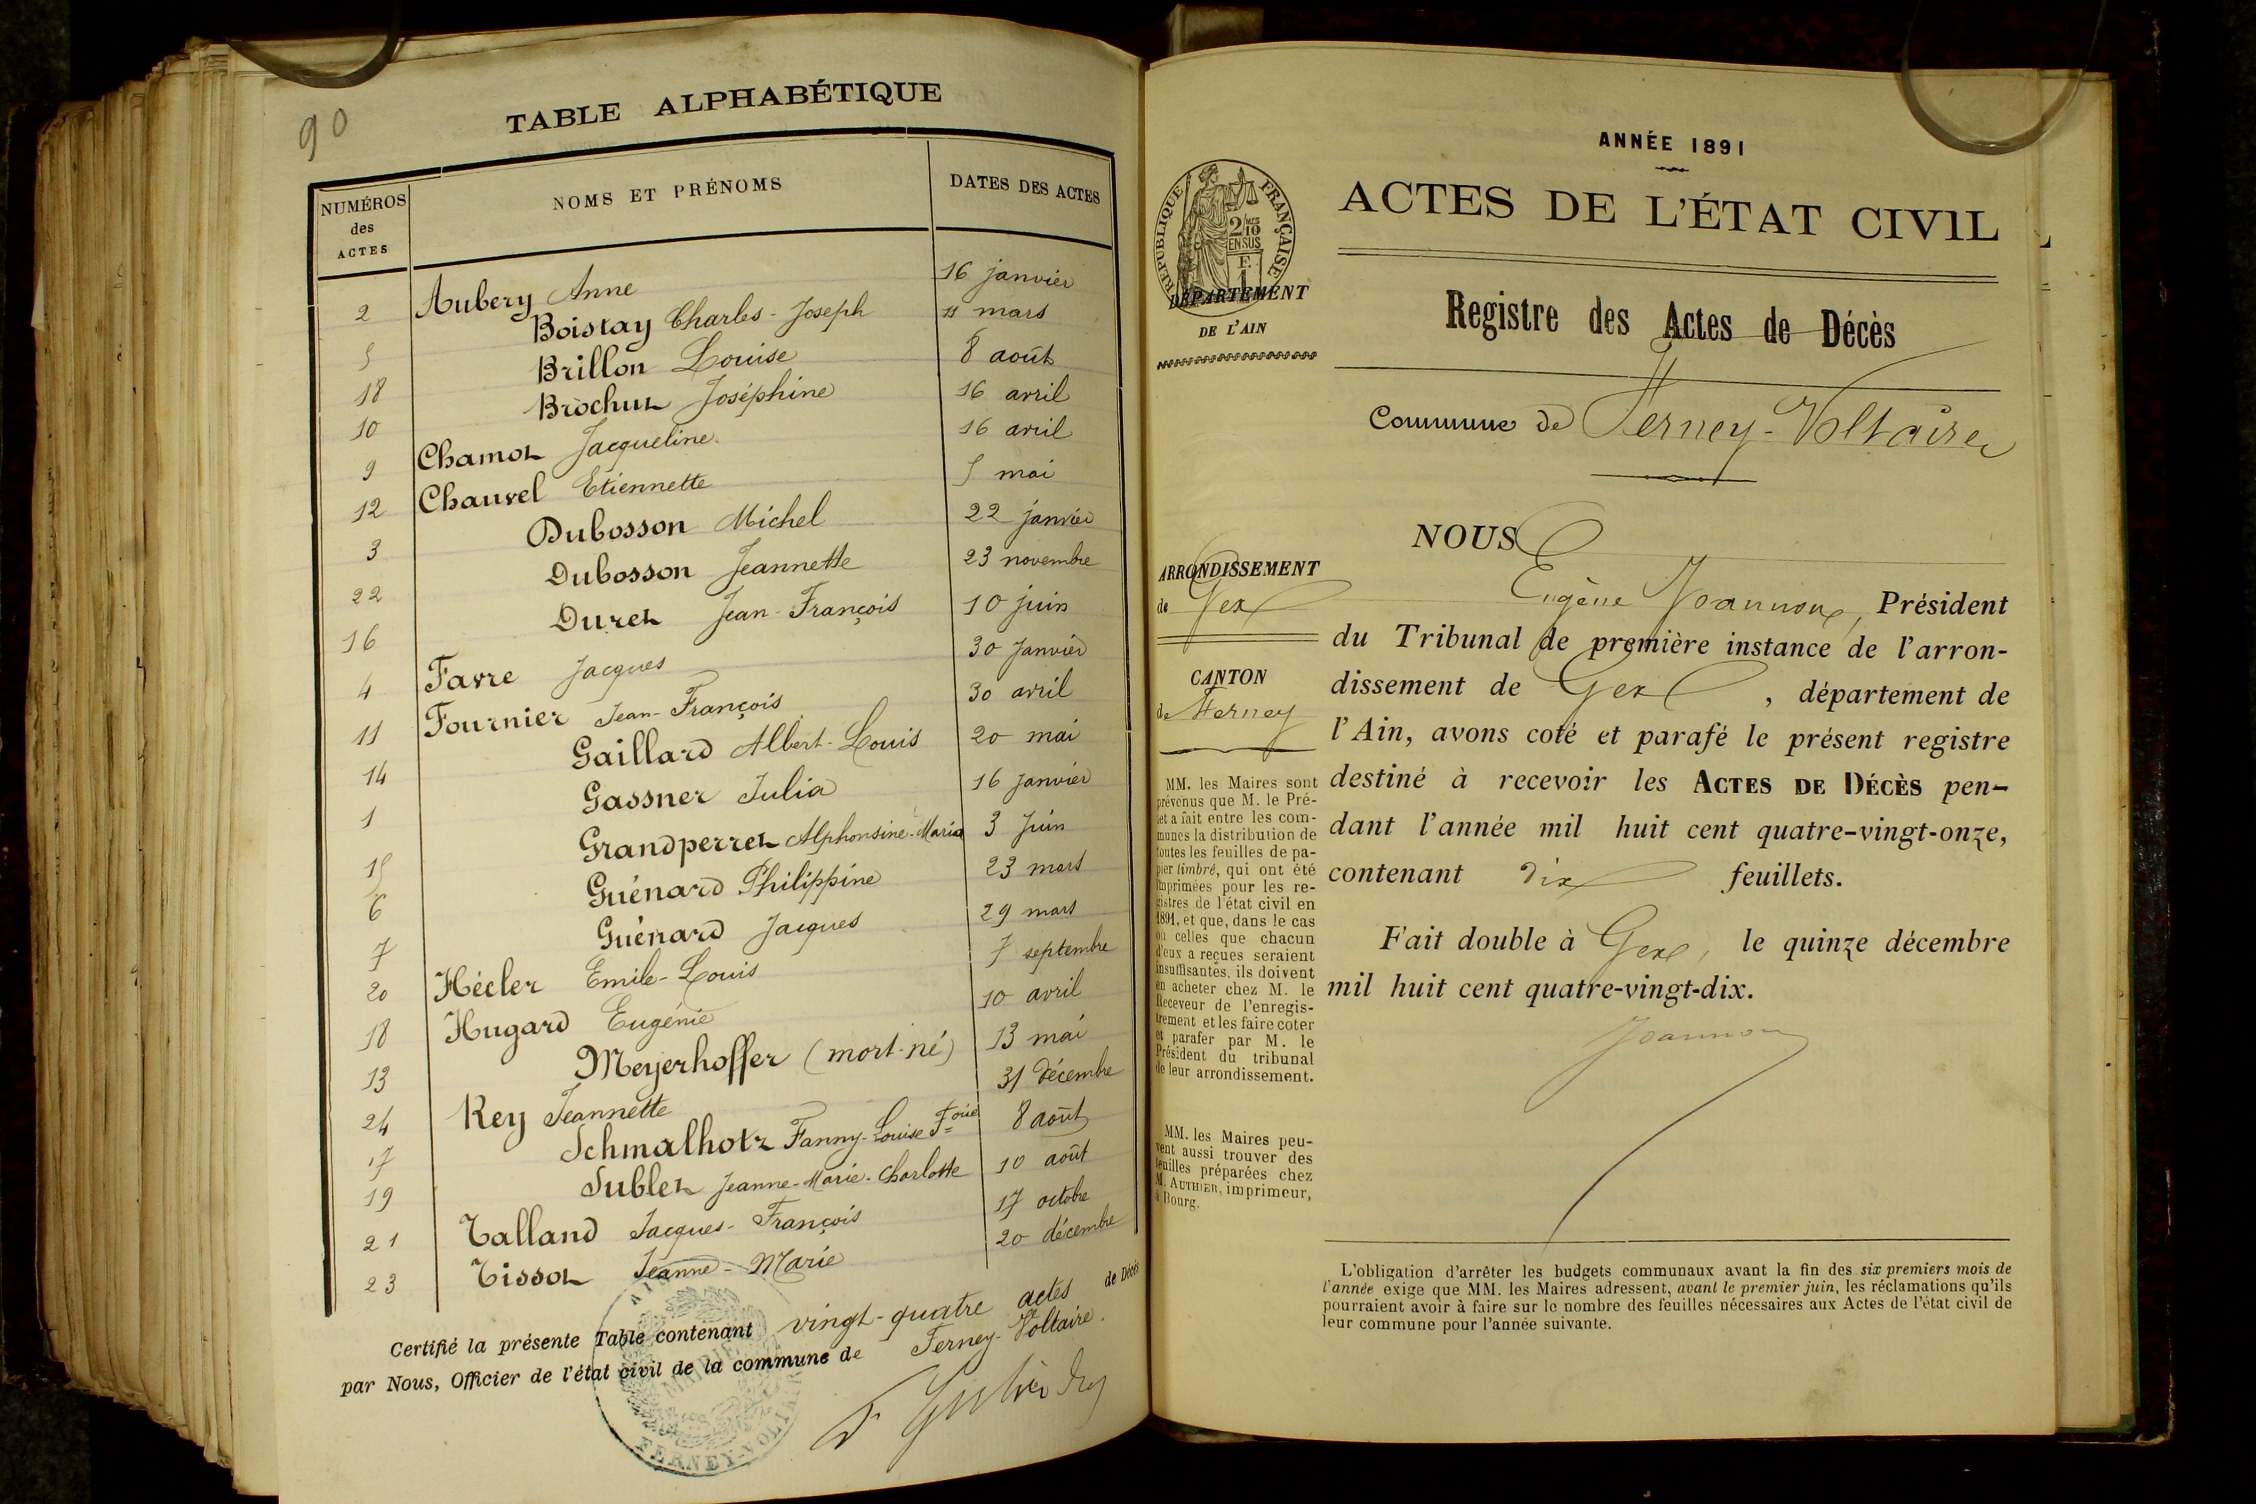 90
TABLE ALPHABÉTIQUE
NUMÉROS des ACTES
NOMS ET PRÉNOMS
DATES DES ACTES
2 Aubery Anne 16 janvier
5 Boistay Charles-Joseph 11 mars
18 Brillon Louise 8 août
10 Brochut Joséphine 16 avril
9 Chamot Jacqueline 16 avril
12 Chauvel Etiennette 5 mai
3 Dubosson Michel 22 janvier
22 Dubosson Jeannette 23 novembre
16 Duret Jean-François 10 juin
4 Favre Jacques 30 janvier
11 Fournier Jean-François 30 avril
14 Gaillard Albert-Louis 20 mai
1 Gassner Julia 16 janvier
15 Grandperret Alphonsine-Maria 3 juin
6 Guénard Philippine 23 mars
7 Guénard Jacques 29 mars
20 Hécler Emile-Louis 7 septembre
18 Hugard Eugénie 10 avril
13 Meyerhoffer (mort-né) 13 mai
24 Rey Jeannette 31 décembre
17 Schmalhotz Fanny-Louise 8 août
19 Sublet Jeanne-Marie-Charlotte 10 août
21 Talland Jacques-François 17 octobre
23 Tissot Jeanne-Marie 20 décembre
Certifié la présente Table contenant vingt-quatre actes de Décès
par Nous, Officier de l'état civil de la commune de Ferney-Voltaire.
MAIRIE
FERNEY-VOLTAIRE
ANNÉE 1891
ACTES DE L'ÉTAT CIVIL
RÉPUBLIQUE FRANÇAISE
2/10 EN SUS
F. 1
DÉPARTEMENT
DE L'AIN
Registre des Actes de Décès
Commune de Ferney-Voltaire
ARRONDISSEMENT
de Gex
CANTON
de Ferney
MM. les Maires sont
prévenus que M. le Pré-
fet a fait entre les com-
munes la distribution de
toutes les feuilles de pa-
pier timbré, qui ont été
imprimées pour les re-
gistres de l'état civil en
1891, et que, dans le cas
où celles que chacun
d'eux a reçues seraient
insuffisantes, ils doivent
en acheter chez M. le
Receveur de l'enregis-
trement et les faire coter
et parafer par M. le
Président du tribunal
de leur arrondissement.
MM. les Maires peu-
vent aussi trouver des
feuilles préparées chez
M. AUTHIER, imprimeur,
à Bourg.
NOUS
Eugène Joannon, Président
du Tribunal de première instance de l'arron-
dissement de Gex, département de
l'Ain, avons coté et parafé le présent registre
destiné à recevoir les ACTES DE DÉCÈS pen-
dant l'année mil huit cent quatre-vingt-onze,
contenant dix feuillets.
Fait double à Gex, le quinze décembre
mil huit cent quatre-vingt-dix.
Joannon
L'obligation d'arrêter les budgets communaux avant la fin des six premiers mois de
l'année exige que MM. les Maires adressent, avant le premier juin, les réclamations qu'ils
pourraient avoir à faire sur le nombre des feuilles nécessaires aux Actes de l'état civil de
leur commune pour l'année suivante.